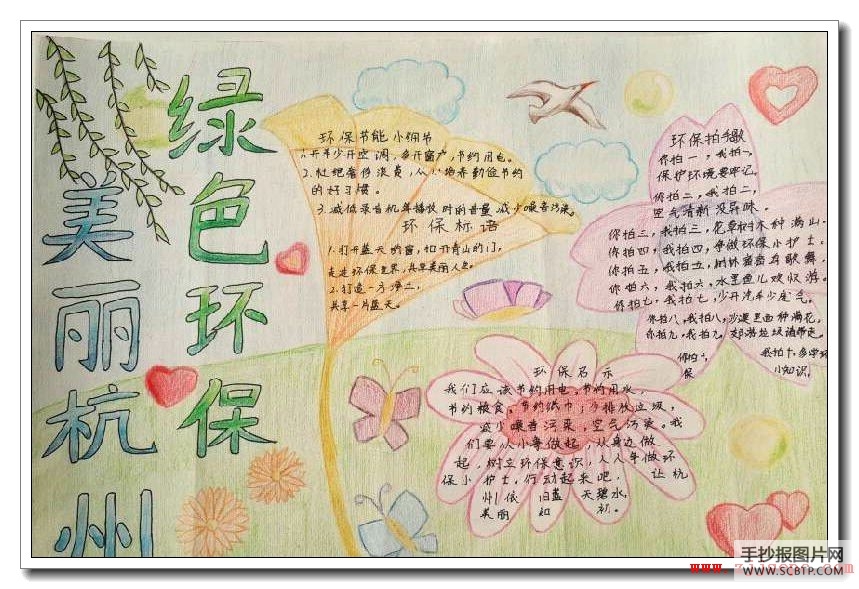 绿色环保
美丽杭州
环保节能小细节
1.开车少开空调,多开窗户,节约用电。
2.杜绝奢侈浪费,从小培养勤俭节约
的好习惯。
3.减低录音机等播放时的音量减少噪音污染。
环保标语
1.打开蓝天的窗,扣开青山的门,
走走环保世界,共享美丽人生。
2.打造一方净土,
共享一片蓝天。
环保拍手歌
你拍一,我拍一,
保护环境要牢记。
你拍二,我拍二,
空气清新没异味。
你拍三,我拍三,花草树木种满山。
你拍四,我拍四,争做环保小护士。
你拍五,我拍五,树林蜜蜂来歌舞。
你拍六,我拍六,水里鱼儿欢快游。
你拍七,我拍七,少开汽车少废气。
你拍八,我拍八,沙漠里面种满花。
你拍九,我拍九,郊游垃圾请带走。
你拍十,我拍十,多学环
保小知识。
环保启示
我们应该节约用电,节约用水,
节约粮食,节约纸巾,少排放垃圾,
减少噪音污染,空气污染。我
们要从小事做起,从身边做
起,树立环保意识,人人争做环
保小护士,行动起来吧,让杭
州依旧蓝天碧水,
美丽如初。
手抄报图片网
WWW.SCBTP.COM